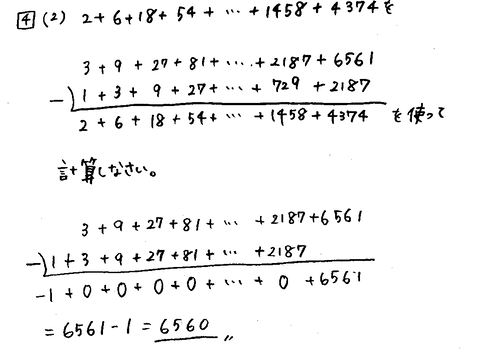 4 (2) 2+6+18+54+…+1458+4374を
3+9+27+81+…+2187+6561
-) 1+3+9+27+…+729+2187
2+6+18+54+…+1458+4374 を使って
計算しなさい。
3+9+27+81+…+2187+6561
-) 1+3+9+27+81+…+2187
-1+0+0+0+0+…+0+6561
=6561-1=6560〃